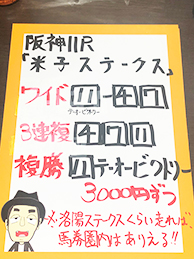 阪神11R
「米子ステークス」
ワイド 11-4 7
テーオービクトリー
3連複 4 7 11
複勝 11 テーオービクトリー
3000円ずつ
〆洛陽ステークスくらい走れば、
馬券圏内はありえる!!